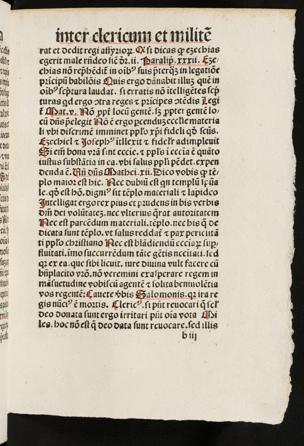 inter clericum et militē
rat et dedit regi assyrioꝝ. Qꝫ si dicas ꝙ ezechias
egerit male rñdeo hic ōr. ii. Paralip. xxxii. Eze
chias nō rephēdit̄ in oibꝰ suis pterꝗꝫ in legatiōe
pricipū babilōis Quis ergo dānabit illuꝫ quē it
in oibꝰ scptura laudat. si erratis nō itelligētes scp
turas qd ergo ōtra reges ⁊ pricipes ōtēdis Legi
Mat. v. Nō ppt locū gentē. sꝫ ppter gentē lo
cū dñs pelegit Nō ē ergo pcenduꝫ ecclie materia
li vbi discrimē imminet ipso xpi fideli qd scūs.
Ezechiel ⁊ Joseph illexit ⁊ fideler adimpleuit
Si em bona vrā sunt eccia. ⁊ ppls ē eccia ē quito
iustus substātia in ea. vbi salus ppli pēdet. expen
denda ē. Vñ dñs Mathei. xii. Dico vobis ꝙ tē
plo maior est hic. Nec dubiū est qn templū ipꝫ sa
le. qd est hō. digniꝰ sit tēplo materiali ⁊ lapideo
Intelligat ergo rex pius et prudens in his verbis
dm̄ dei volūtatez. nec vlterius ꝗrat autoritatem
Nec est parcēdum materiali. tēplo. nec bis q̄ de
dicata sunt tēplo. vt salus reddat̄ ⁊ pax pericliti
ti pplo christiano Nec est blādiendū ecciaꝝ sup
fluitati. imo succurrēdum tāte gētis necitati. sed
qꝛ ex ea. que sibi licuit. iure diuina vult facere cū
bñplacito vrō. nō veremini exasperare regem in
māsuetudine vobiscū agentē ⁊ solita beniuolētia
vos regentē: Cauete vbis Salomonis. qꝛ ira re
gis nūciꝰ ē mortis. Clericꝰ. si pūt reuocari q̄ sel̄
deo donata sunt ergo irritari pūt oia vota Mi
les. hoc nō est ꝙ deo data sunt reuocare. sed illis
b iii